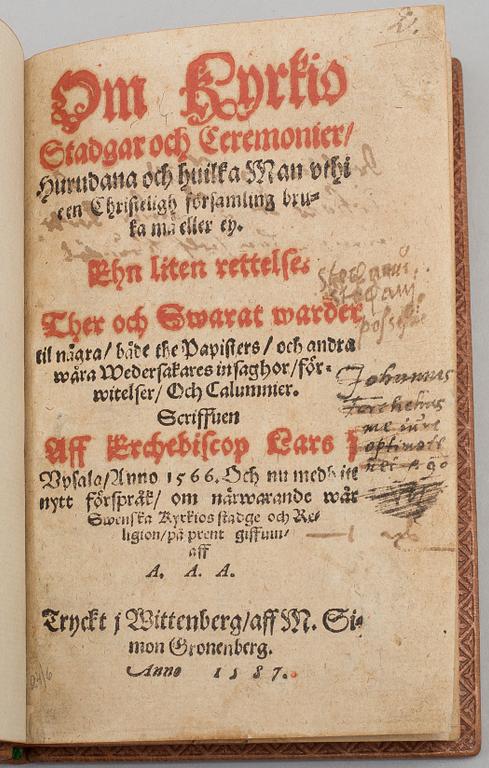 Om Kyrkio
Stadgar och Ceremonier/
Hurudana och huilka Man vthi
een Christeligh församling bru-
ka må eller ey.
Ehn liten rettelse
Ther och Swarat warder
til några/ både the Papisters/ och andra
wåra Wedersakares insaghor/ för-
witelser/ Och Calumnier.
Scriffuen
Aff Erchebiscop Lars j
Vpsala/ Anno 1566. Och nu medh itt
nytt förspråk/ om närwarande wår
Swenska Kyrkios stadge och Re-
ligion/ på prent giffuin/
aff
A. A. A.
Tryckt j Wittenberg/ aff M. Si-
mon Gronenberg.
Anno 1587.
Johannis
me iure